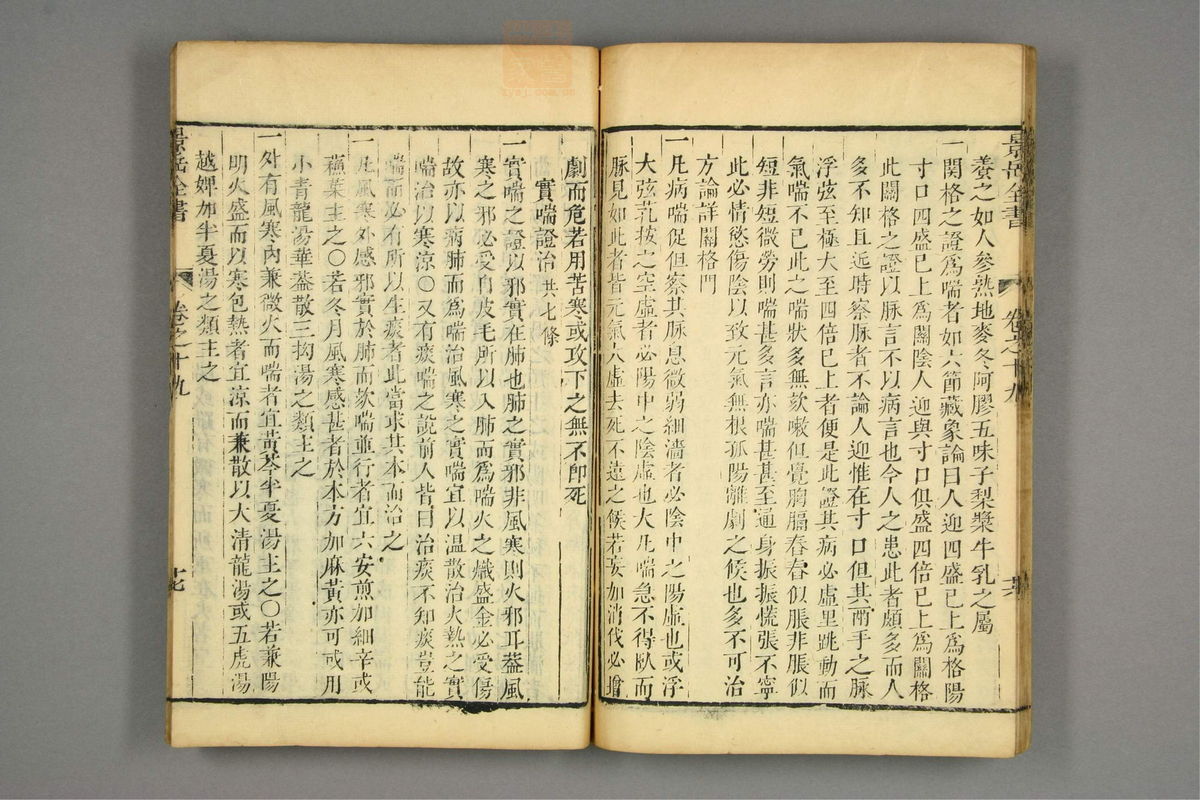 景岳全書
卷之十九
養之如人參熟地麥冬阿膠五味子梨漿牛乳之屬
一關格之證爲喘者如六節藏象論曰人迎四盛已上爲格陽
寸口四盛已上爲關陰人迎與寸口俱盛四倍已上爲關格
此關格之證以脉言不以病言也今人之患此者頗多而人
多不知且近時察脉者不論人迎惟在寸口但其兩手之脉
浮弦至極大至四倍已上者便是此證其病必虛里跳動而
氣喘不已此之喘狀多無欬嗽但覺胸膈舂舂似脹非脹似
短非短微勞則喘甚多言亦喘甚甚至通身振振慌張不寧
此必情慾傷陰以致元氣無根孤陽離劇之候也多不可治
方論詳關格門
一凡病喘促但察其脉息微弱細濇者必陰中之陽虛也或浮
大弦芤按之空虛者必陽中之陰虛也大凡喘急不得臥而
脉見如此者皆元氣大虛去死不遠之候若妄加消伐必增
劇而危若用苦寒或攻下之無不卽死
實喘證治 共七條
一實喘之證以邪實在肺也肺之實邪非風寒則火邪耳葢風
寒之邪必受自皮毛所以入肺而爲喘火之熾盛金必受傷
故亦以病肺而爲喘治風寒之實喘宜以温散治火熱之實
喘治以寒涼○又有痰喘之說前人皆曰治痰不知痰豈能
喘而必有所以生痰者此當求其本而治之
一凡風寒外感邪實於肺而欬喘並行者宜六安煎加細辛或
蘓葉主之○若冬月風寒感甚者於本方加麻黃亦可或用
小青龍湯華葢散三拗湯之類主之
一外有風寒內兼微火而喘者宜黃芩半夏湯主之○若兼陽
明火盛而以寒包熱者宜涼而兼散以大清龍湯或五虎湯
越婢加半夏湯之類主之
景岳全書
卷之十九